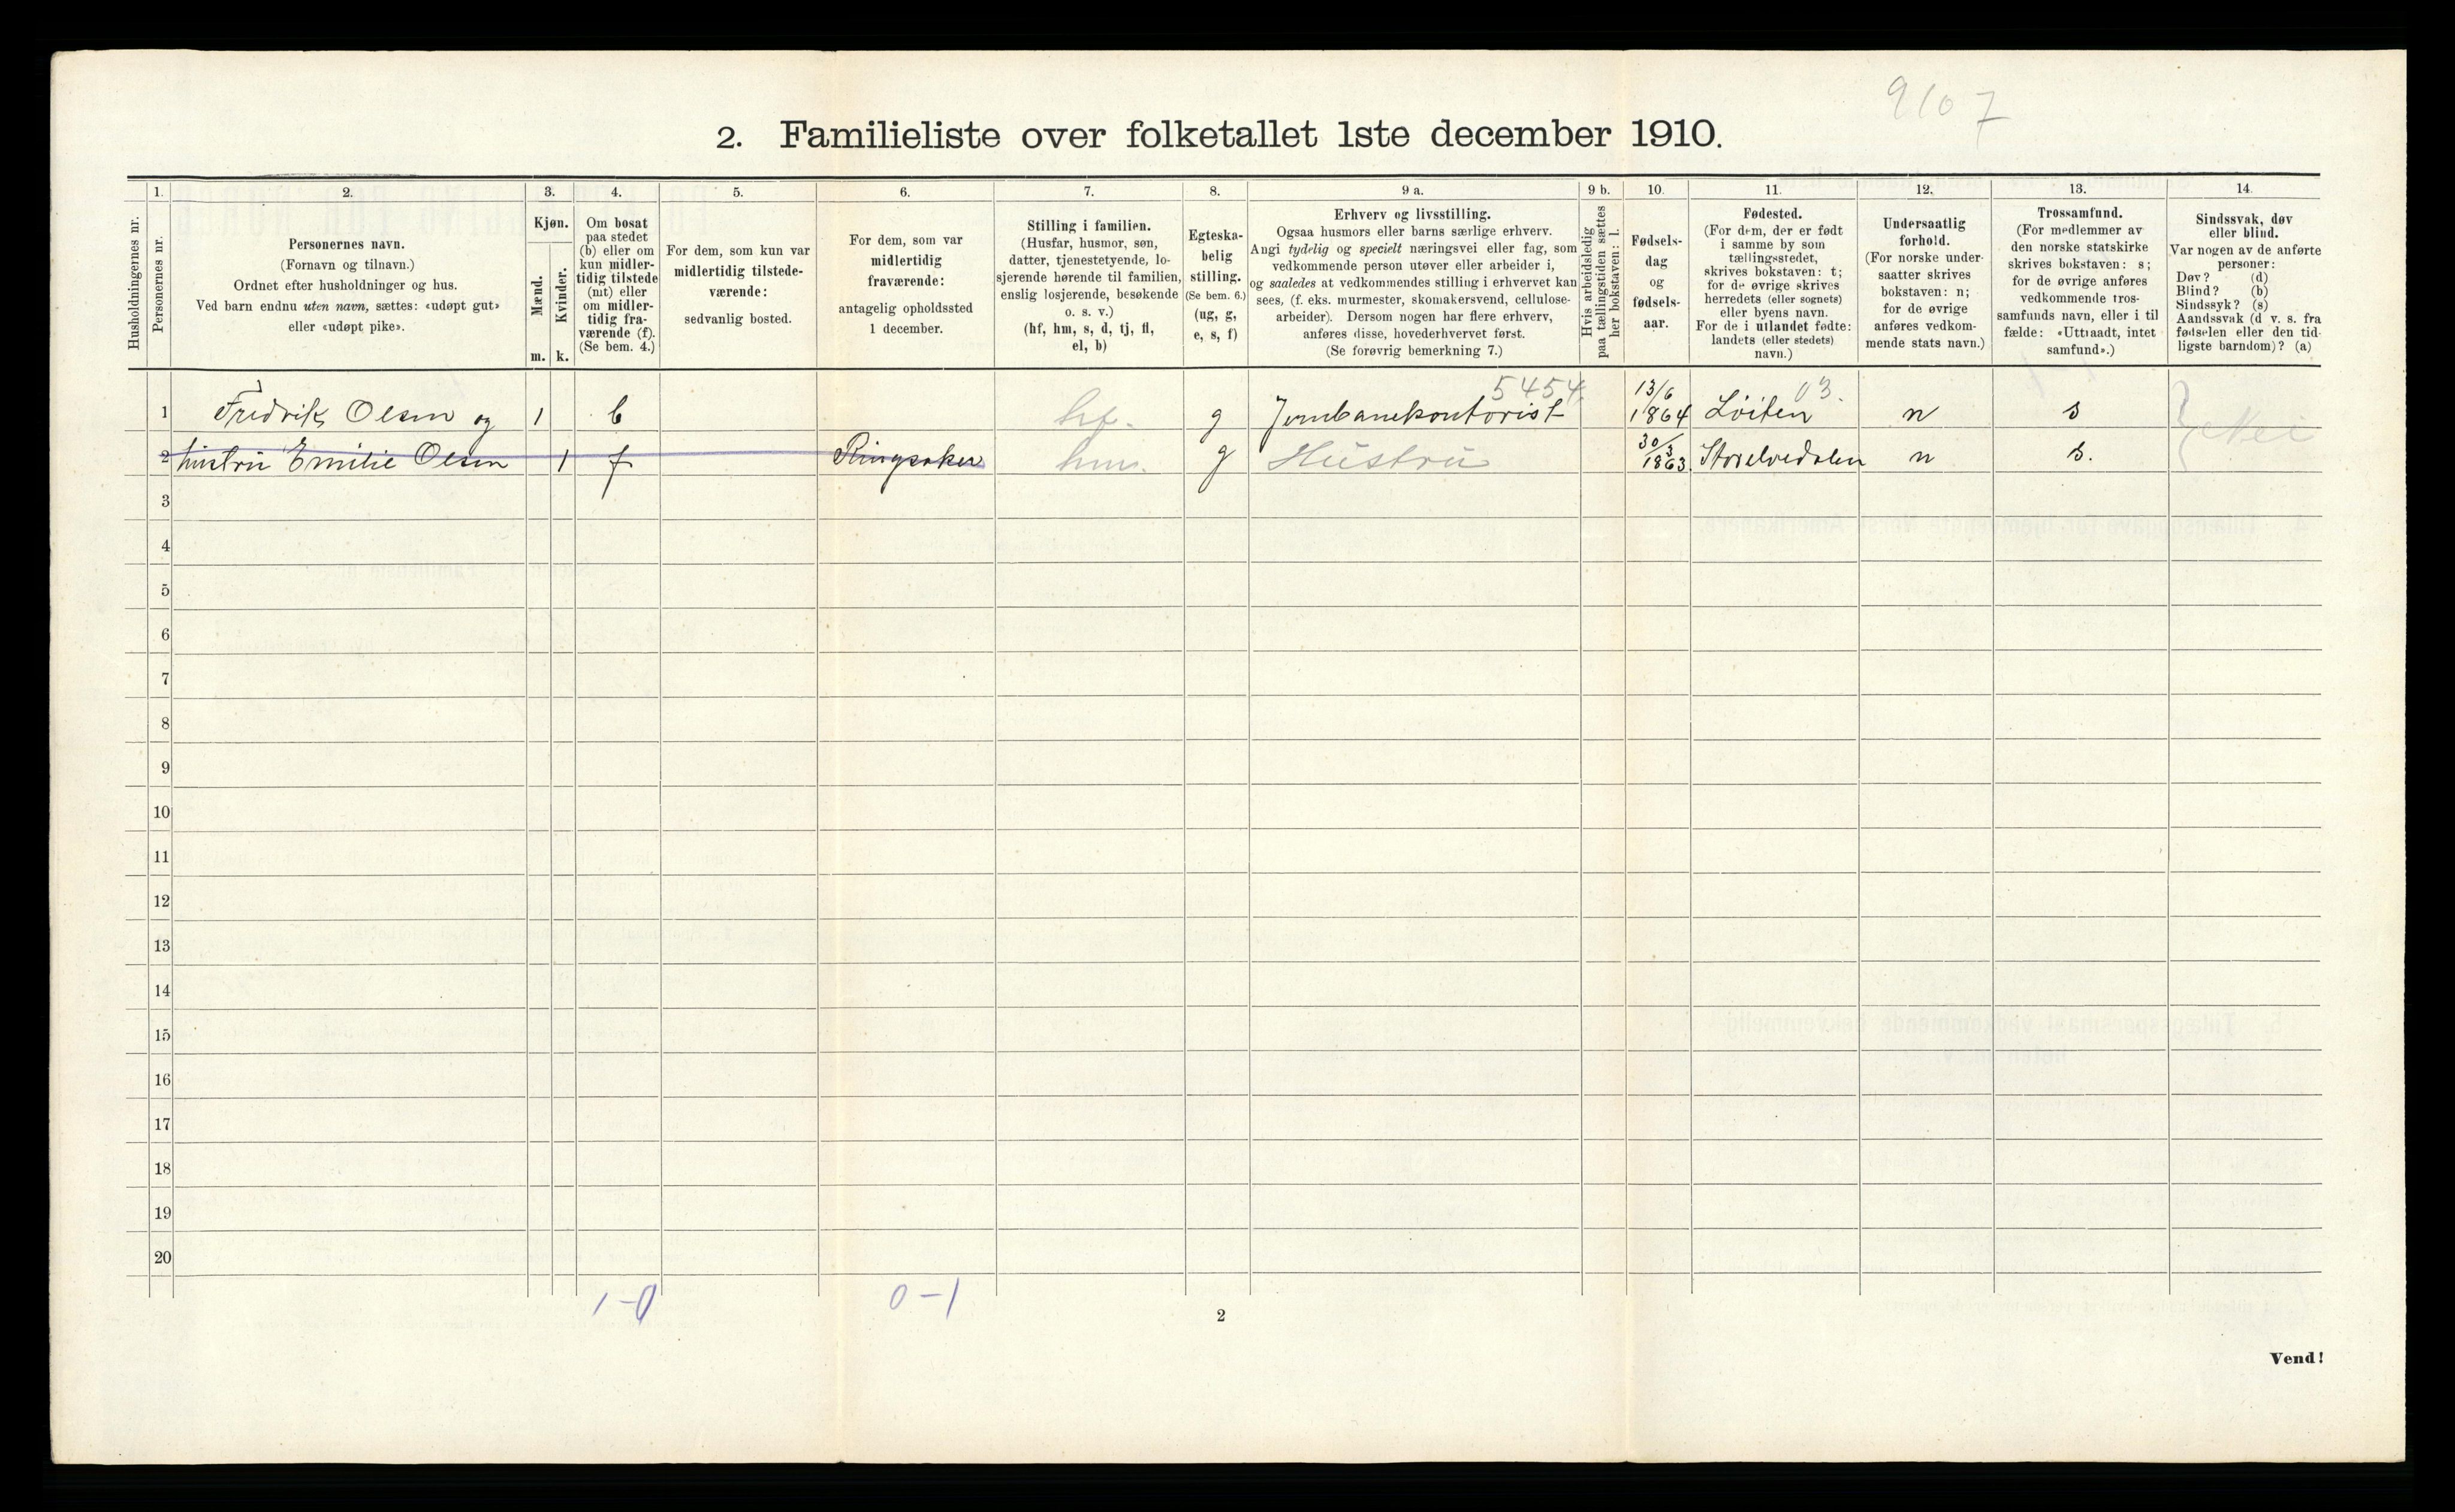 9107
2. Familieliste over folketallet 1ste december 1910.
1. 2. 3. 4. 5. 6. 7. 8. 9 a. 9 b. 10. 11. 12. 13. 14.
Husholdningernes nr.
Personernes nr.
Personernes navn.
(Fornavn og tilnavn.)
Ordnet efter husholdninger og hus.
Ved barn endnu uten navn, sættes: «udøpt gut»
eller «udøpt pike».
Kjøn.
Mænd.
Kvinder.
m. k.
Om bosat
paa stedet
(b) eller om
kun midler-
tidig tilstede
(mt) eller
om midler-
tidig fra-
værende (f).
(Se bem. 4.)
For dem, som kun var
midlertidig tilstede-
værende:
sedvanlig bosted.
For dem, som var
midlertidig
fraværende:
antagelig opholdssted
1 december.
Stilling i familien.
(Husfar, husmor, søn,
datter, tjenestetyende, lo-
sjerende hørende til familien,
enslig losjerende, besøkende
o. s. v.)
(hf, hm, s, d, tj, fl,
el, b)
Egteska-
belig
stilling.
(Se bem. 6.)
(ug, g,
e, s, f)
Erhverv og livsstilling.
Ogsaa husmors eller barns særlige erhverv.
Angi tydelig og specielt næringsvei eller fag, som
vedkommende person utøver eller arbeider i,
og saaledes at vedkommendes stilling i erhvervet kan
sees, (f. eks. murmester, skomakersvend, cellulose-
arbeider). Dersom nogen har flere erhverv,
anføres disse, hovederhvervet først.
(Se forøvrig bemerkning 7.)
Hvis arbeidsledig
paa tællingstiden sættes
her bokstaven: l.
Fødsels-
dag
og
fødsels-
aar.
Fødested.
(For dem, der er født
i samme by som
tællingsstedet,
skrives bokstaven: t;
for de øvrige skrives
herredets (eller sognets)
eller byens navn.
For de i utlandet fødte:
landets (eller stedets)
navn.)
Undersaatlig
forhold.
(For norske under-
saatter skrives
bokstaven: n;
for de øvrige
anføres vedkom-
mende stats navn.)
Trossamfund.
(For medlemmer av
den norske statskirke
skrives bokstaven: s;
for de øvrige anføres
vedkommende tros-
samfunds navn, eller i til
fælde: «Uttraadt, intet
samfund».)
Sindssvak, døv
eller blind.
Var nogen av de anførte
personer:
Døv? (d)
Blind? (b)
Sindssyk? (s)
Aandssvak (d v. s. fra
fødselen eller den tid-
ligste barndom)? (a)
5454. 13/6 03.
1 Fredrik Olsen og 1 b hf. g Jernbanekontorist 1864 Löiten n s
} Nei
30/3
2 hustru Emilie Olsen 1 f Ringsaker hm. g Hustru 1863. Storelvedalen n s.
3
4
5
6
7
8
9
10
11
12
13
14
15
16
17
18
19
20
1-0 0-1
2
Vend!